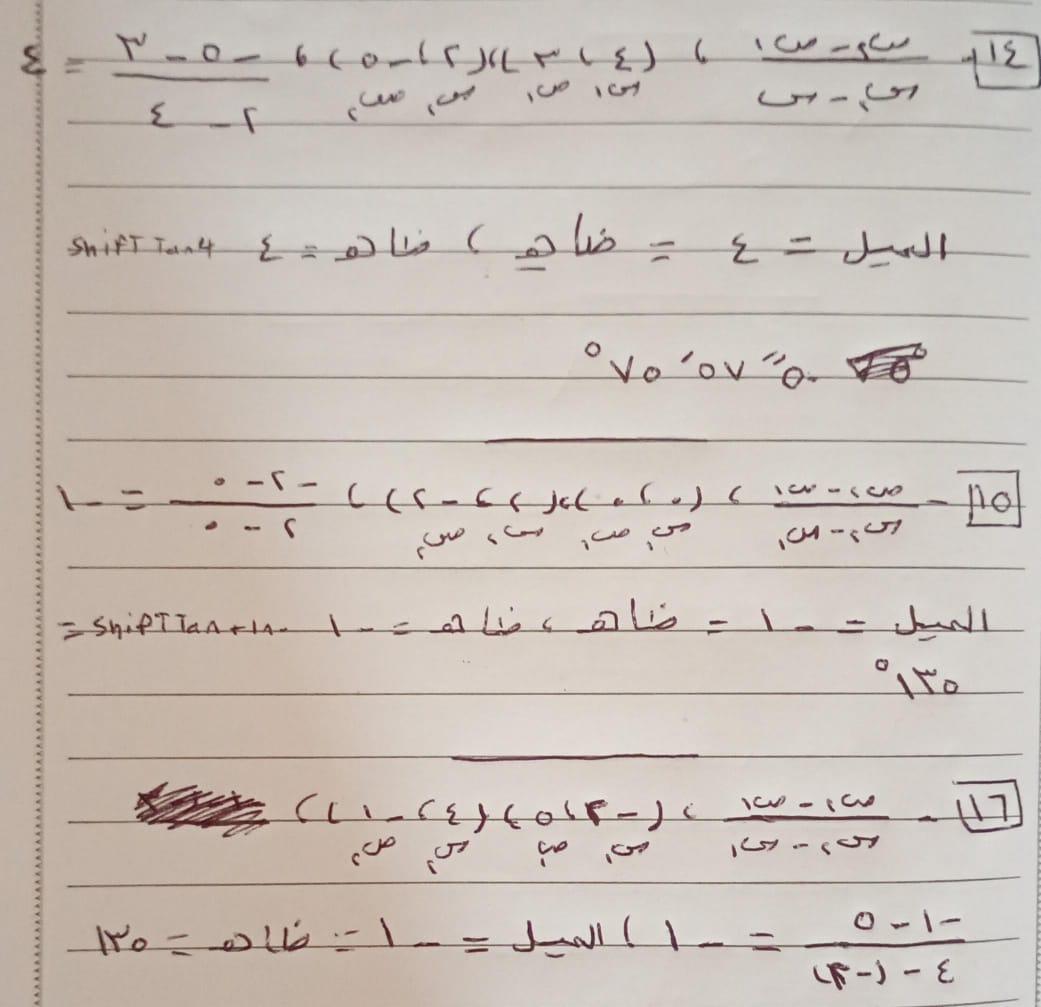 ١٤- ص٢ - ص١ / س٢ - س١ ، (٤ ، ٣)، (٢، -٥) ، -٥ - ٣ / ٢ - ٤ = ٤
س١ ص١ س٢ ص٢
الميل = ٤ = ظاهـ ، ظاهـ = ٤ shift Tan 4
٥٠ً ٥٧َ ٧٥°
١٥- ص٢ - ص١ / س٢ - س١ ، (٠ ، ٠)، (٢ ، -٢) ، -٢ - ٠ / ٢ - ٠ = -١
س١ ص١ س٢ ص٢
الميل = -١ = ظاهـ ، ظاهـ = -١ shift Tan =
١٣٥°
١٦- ص٢ - ص١ / س٢ - س١ ، (-٢ ، ٥)، (٤ ، -١) ،
س١ ص١ س٢ ص٢
-١ - ٥ / ٤ - (-٢) = -١ ، الميل = -١ = ظاهـ = ١٣٥